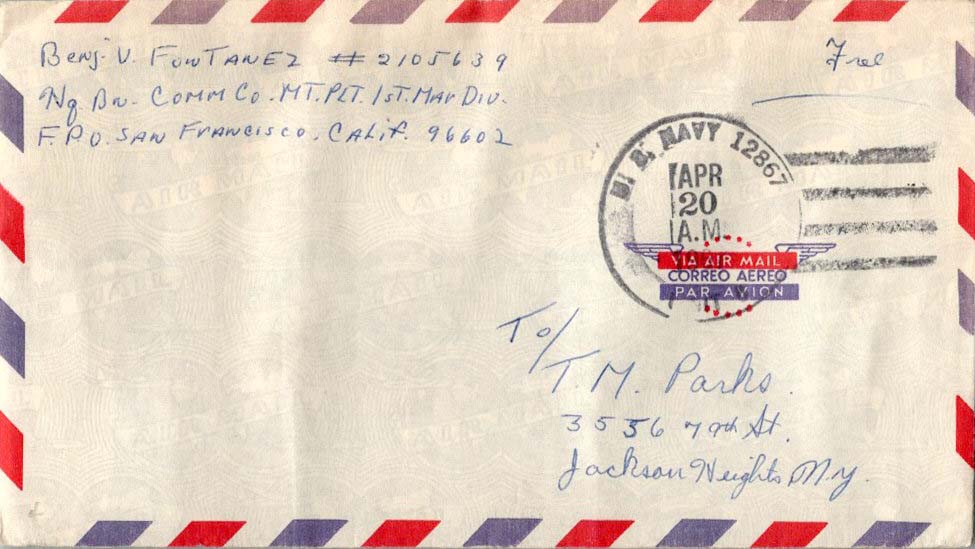 Benj. V. FonTANEZ # 2105639
Hq. Bn. Comm Co. MT. PLT. 1st. Mar Div.
F.P.O. SAN FrANCisco. CALif. 96602
Free
U. S. NAVY 12867
APR
20
A.M.
VIA AIR MAIL
CORREO AEREO
PAR AVION
To/
T. M. Parks.
3536 79th St.
Jackson Heights N.Y.